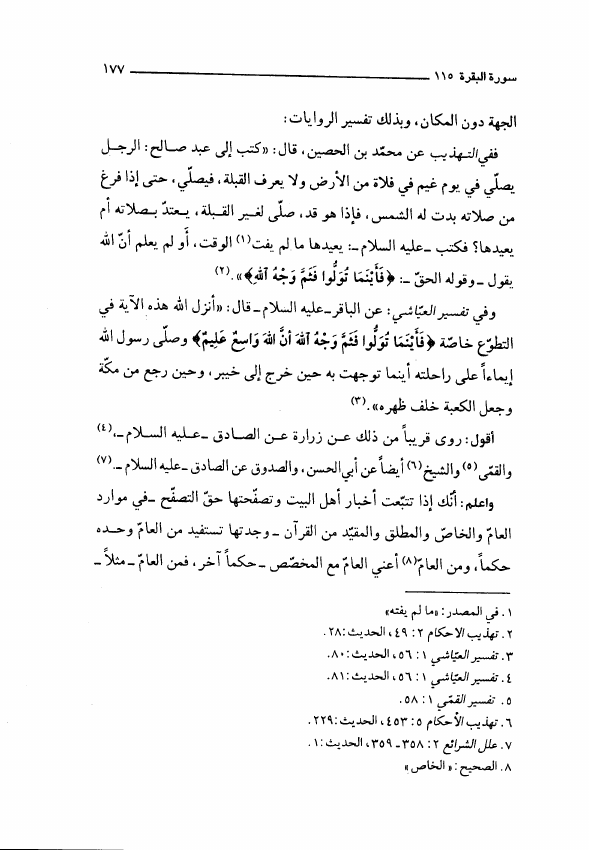 سورة البقرة ١١٥ ــــــــــــــــــــ ١٧٧
الجهة دون المكان، وبذلك تفسير الروايات:
ففي التهذيب عن محمّد بن الحصين، قال: «كتب إلى عبد صالح: الرجل
يصلّي في يوم غيم في فلاة من الأرض ولا يعرف القبلة، فيصلّي، حتى إذا فرغ
من صلاته بدت له الشمس، فإذا هو قد، صلّى لغير القبلة، يعتدّ بصلاته أم
يعيدها؟ فكتب ـ عليه السلام ـ: يعيدها ما لم يفت(١) الوقت، أو لم يعلم أنّ الله
يقول ـ وقوله الحقّ ـ: ﴿فَأَيْنَمَا تُوَلُّوا فَثَمَّ وَجْهُ ٱللهِ﴾».(٢)
وفي تفسير العيّاشي: عن الباقر ـ عليه السلام ـ قال: «أنزل الله هذه الآية في
التطوّع خاصّة ﴿فَأَيْنَمَا تُوَلُّوا فَثَمَّ وَجْهُ ٱللهَ أنَّ ٱللهَ وَاسِعٌ عَلِيمٌ﴾ وصلّى رسول الله
إيماءاً على راحلته أينما توجهت به حين خرج إلى خيبر، وحين رجع من مكّة
وجعل الكعبة خلف ظهره».(٣)
أقول: روى قريباً من ذلك عن زرارة عن الصادق ـ عليه السلام ـ،(٤)
والقمّي(٥) والشيخ(٦) أيضاً عن أبي الحسن، والصدوق عن الصادق ـ عليه السلام ـ.(٧)
واعلم: أنّك إذا تتبّعت أخبار أهل البيت وتصفّحتها حقّ التصفّح ـ في موارد
العامّ والخاصّ والمطلق والمقيّد من القرآن ـ وجدتها تستفيد من العامّ وحده
حكماً، ومن العامّ(٨) أعني العامّ مع المخصّص ـ حكماً آخر، فمن العامّ ـ مثلاً ـ
١. في المصدر: «ما لم يفته»
٢. تهذيب الاحكام ٢: ٤٩، الحديث: ٢٨.
٣. تفسير العيّاشي ١: ٥٦، الحديث: ٨٠.
٤. تفسير العيّاشي ١: ٥٦، الحديث: ٨١.
٥. تفسير القمّي ١: ٥٨.
٦. تهذيب الأحكام ٥: ٤٥٣، الحديث: ٢٢٩.
٧. علل الشرائع ٢: ٣٥٨ ـ ٣٥٩، الحديث: ١.
٨. الصحيح: «الخاص»